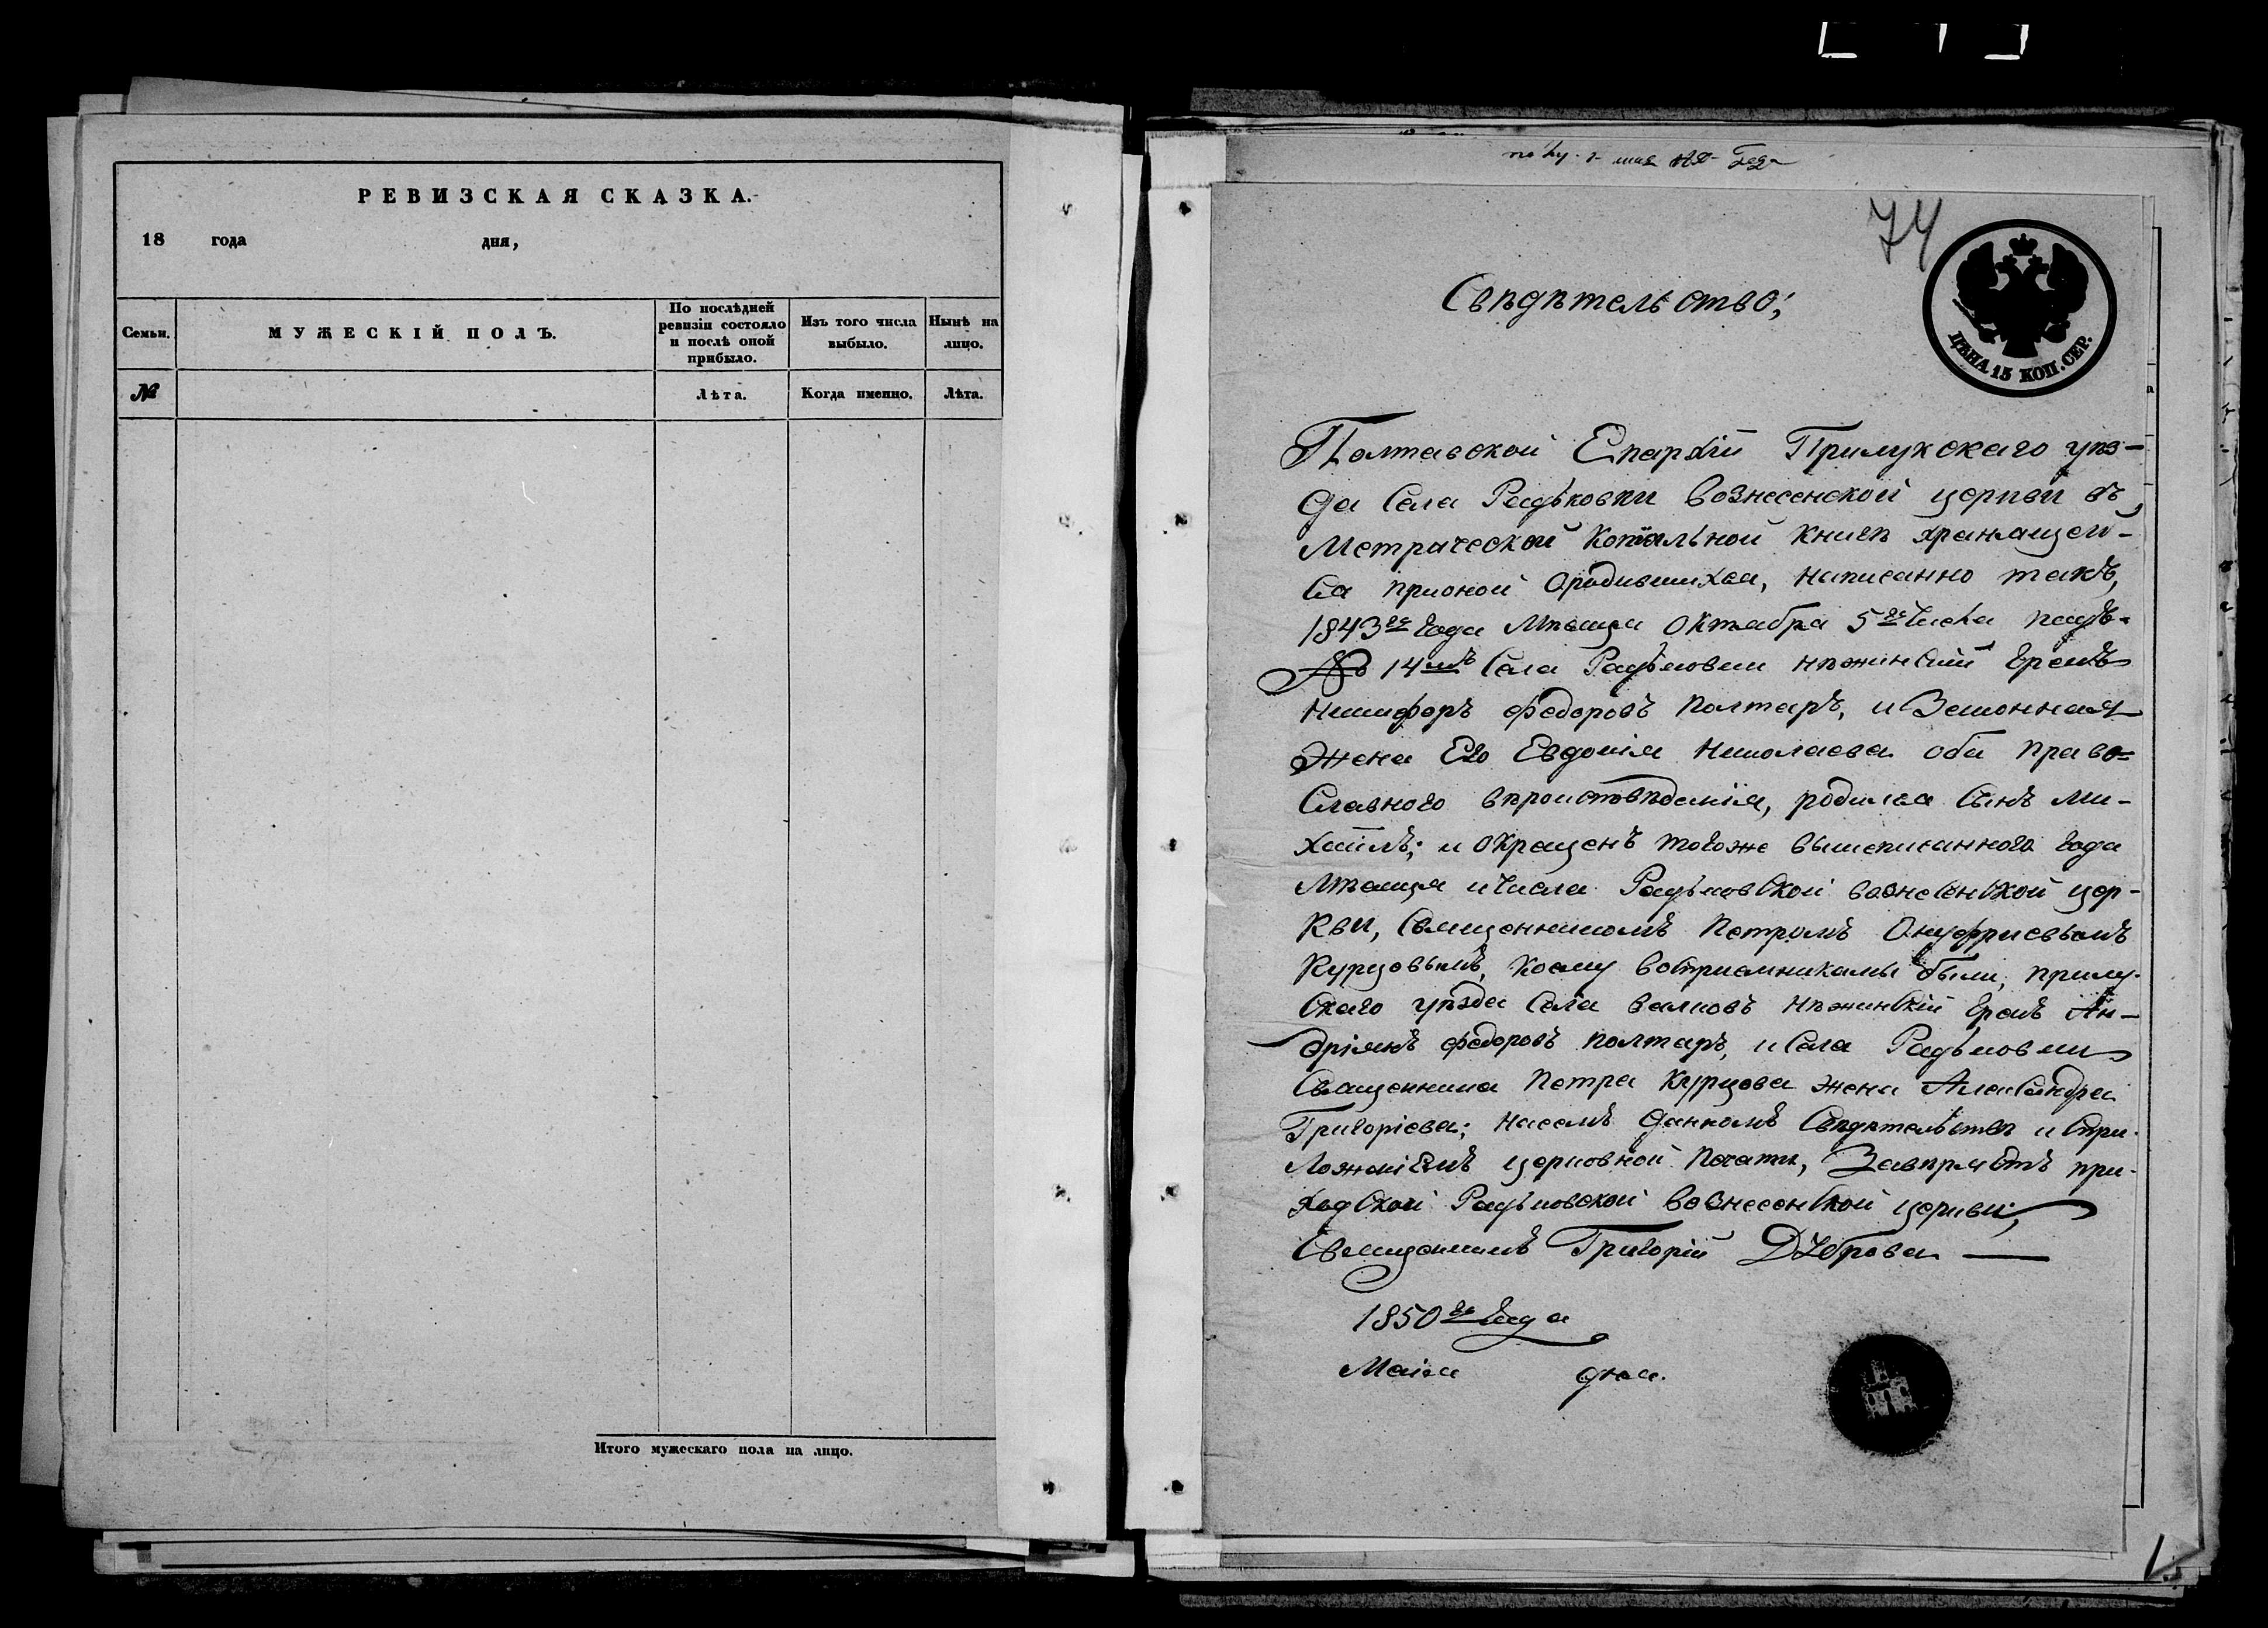 РЕВИЗСКАЯ СКАЗКА.
18 года дня,
Семьи.
МУЖЕСКІЙ ПОЛЪ.
По послѣдней
ревизіи состояло
и послѣ оной
прибыло.
Изъ того числа
выбыло.
Нынѣ на
лицо.
№
Лѣта.
Когда именно.
Лѣта.
Итого мужескаго пола на лицо.
74
ЦѢНА 15 КОП. СЕР.
Свѣдѣтельство;
Полтавской Епархіи Прилукскаго уѣз-
да Села Радьковки Вознесенской церкви въ
Метраческой Копіальной Книгѣ хранящей-
ся прионой Ородившихся, написанно такъ,
1843го года Мѣсяца Октября 5го Числа подъ
№ 14мъ Села Радьковки нѣжинскій Грекъ
Никифоръ Федоровъ Полтаръ, и Законная
Жена Его Евдокія Николаева оба право=
Славного вѣроисповѣданія, родился Сынъ Ми-
хаилъ; и Окрещенъ тогоже вышеписанного года
Мѣсяца и Числа Радьковской вознесенской цер-
кви, Священникомъ Петромъ Онуфриевымъ
Курцовымъ, Коему восприемниками были, прилу-
скаго уѣзда Села Валковъ Нѣжинскій Грекъ Ан-
дріянъ Федоровъ Полтаръ, и Села Радьковки
Священника Петра Курцова жена Александра
Григоріева; Насемъ данномъ Свѣдѣтельствѣ и Спри-
ложеніемъ церковной Печати, Завѣряетъ при-
ходской Радьковской вознесенской церкви;
Священникъ Григорій Дуброва
1850го года
Маія дня.